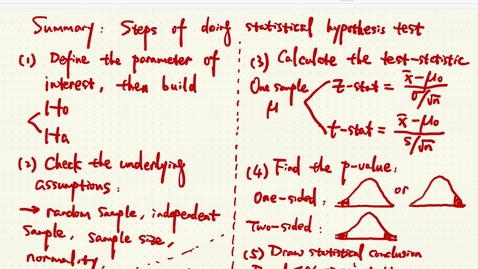 Summary: Steps of doing statistical hypothesis test
(1) Define the parameter of
interest, then build
H0
Ha
(2) Check the underlying
assumptions:
→ random sample, independent
sample, sample size,
normality
(3) Calculate the test-statistic
One sample
μ
z-stat = (x̄-μ0)/(σ/√n)
t-stat = (x̄-μ0)/(s/√n)
(4) Find the p-value:
One-sided: or
Two-sided:
(5) Draw statistical conclusion